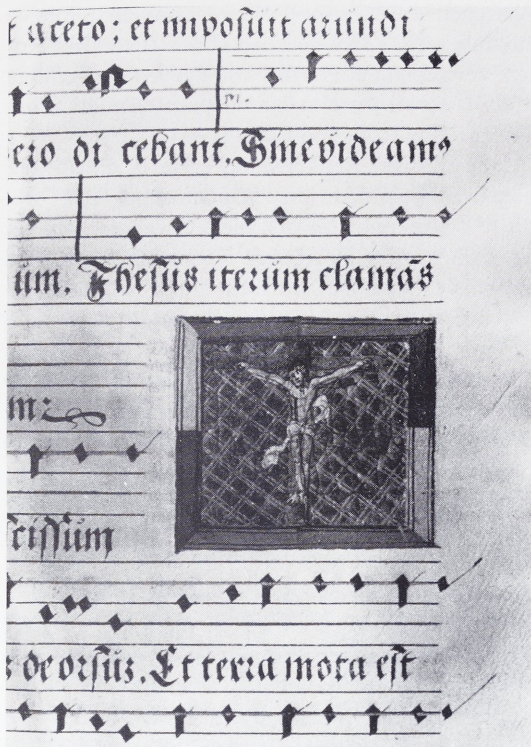 t aceto: et imposuit arundi
ero di cebant. Sine videamꝰ
um. Ihesus iterum clamãs
m:
scissum
deorsuz. Et terra mota est